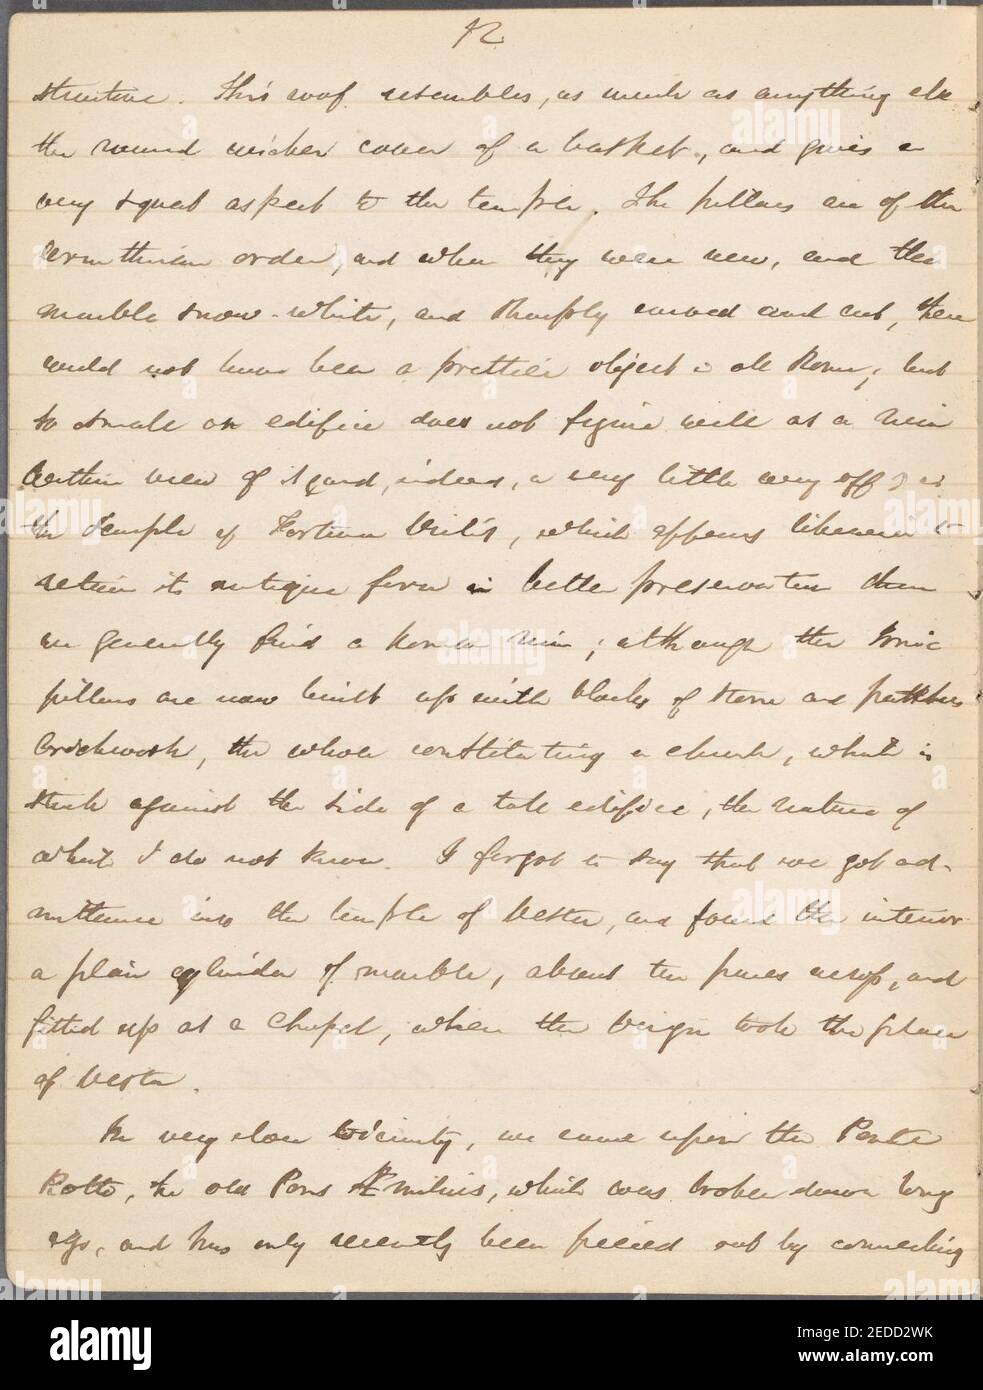 12
structure. This roof resembles, as much as anything else
the round wicker cover of a basket, and gives a
very squat aspect to the temple. The pillars are of the
Corinthian order, and when they were new, and the
marble snow-white, and sharply carved and cut, there
could not have been a prettier object in all Rome; but
so small an edifice does not figure well as a ruin
Within view of it, and, indeed, a very little way off, is
the Temple of Fortuna Virilis, which appears likewise to
retain its antique form in better preservation than
we generally find a Roman ruin; although the Ionic
pillars are now built up with blocks of stone and patches
brickwork, the whole constituting a church, which is
stuck against the side of a tall edifice, the nature of
which I do not know. I forgot to say that we got ad-
mittance into the temple of Vesta, and found the interior
a plain cylinder of marble, about ten paces across, and
fitted up as a chapel, where the Virgin took the place
of Vesta.
In very close vicinity, we came upon the Ponte
Rotto, the old Pons Æmilius, which was broken down long
ago, and has only recently been pieced out by connecting
alamy
Image ID: 2EDD2WK
www.alamy.com